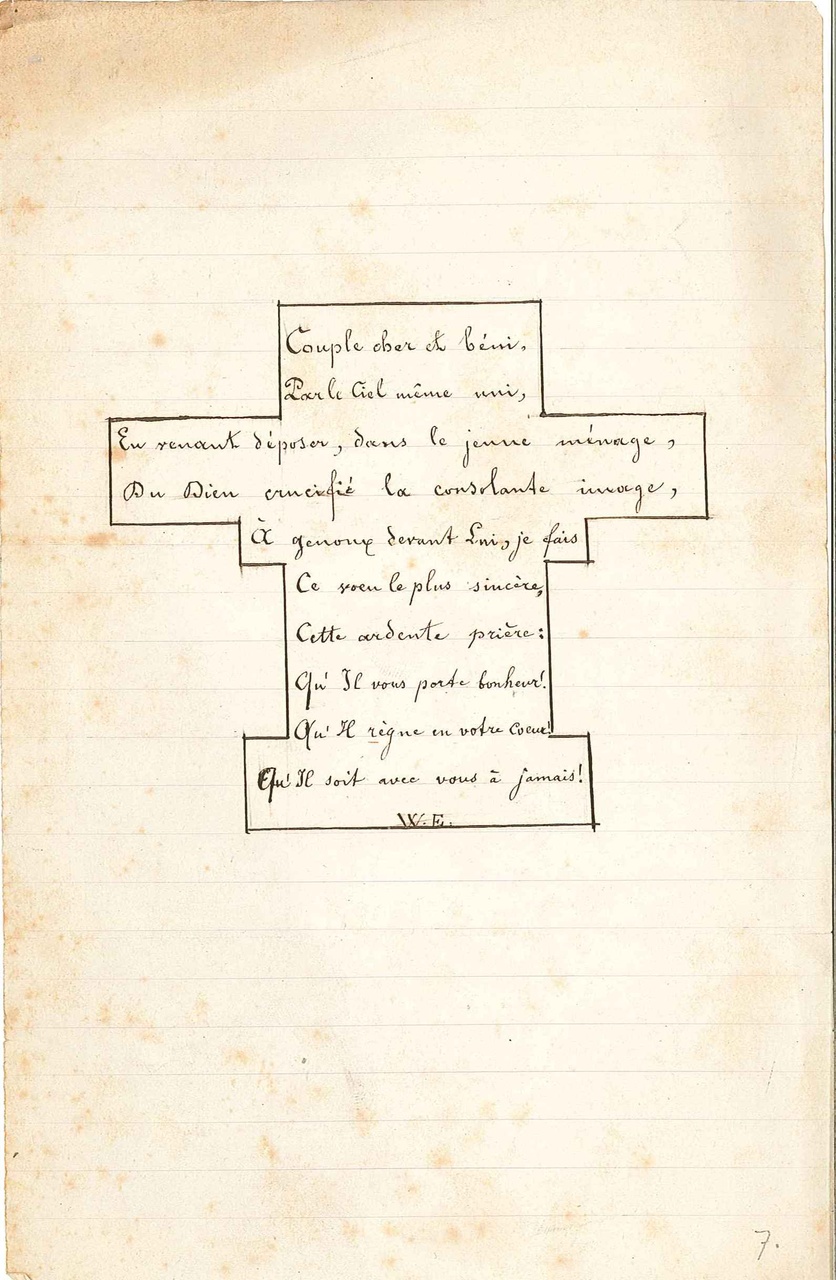 Couple cher et béni,
Par le Ciel même uni,
En venant déposer, dans le jeune ménage,
Du Dieu crucifié la consolante image,
À genoux devant Lui, je fais
Ce voeu le plus sincère,
Cette ardente prière:
Qu' Il vous porte bonheur!
Qu' Il règne en votre coeur!
Qu' Il soit avec vous à jamais!
W. E.
7.